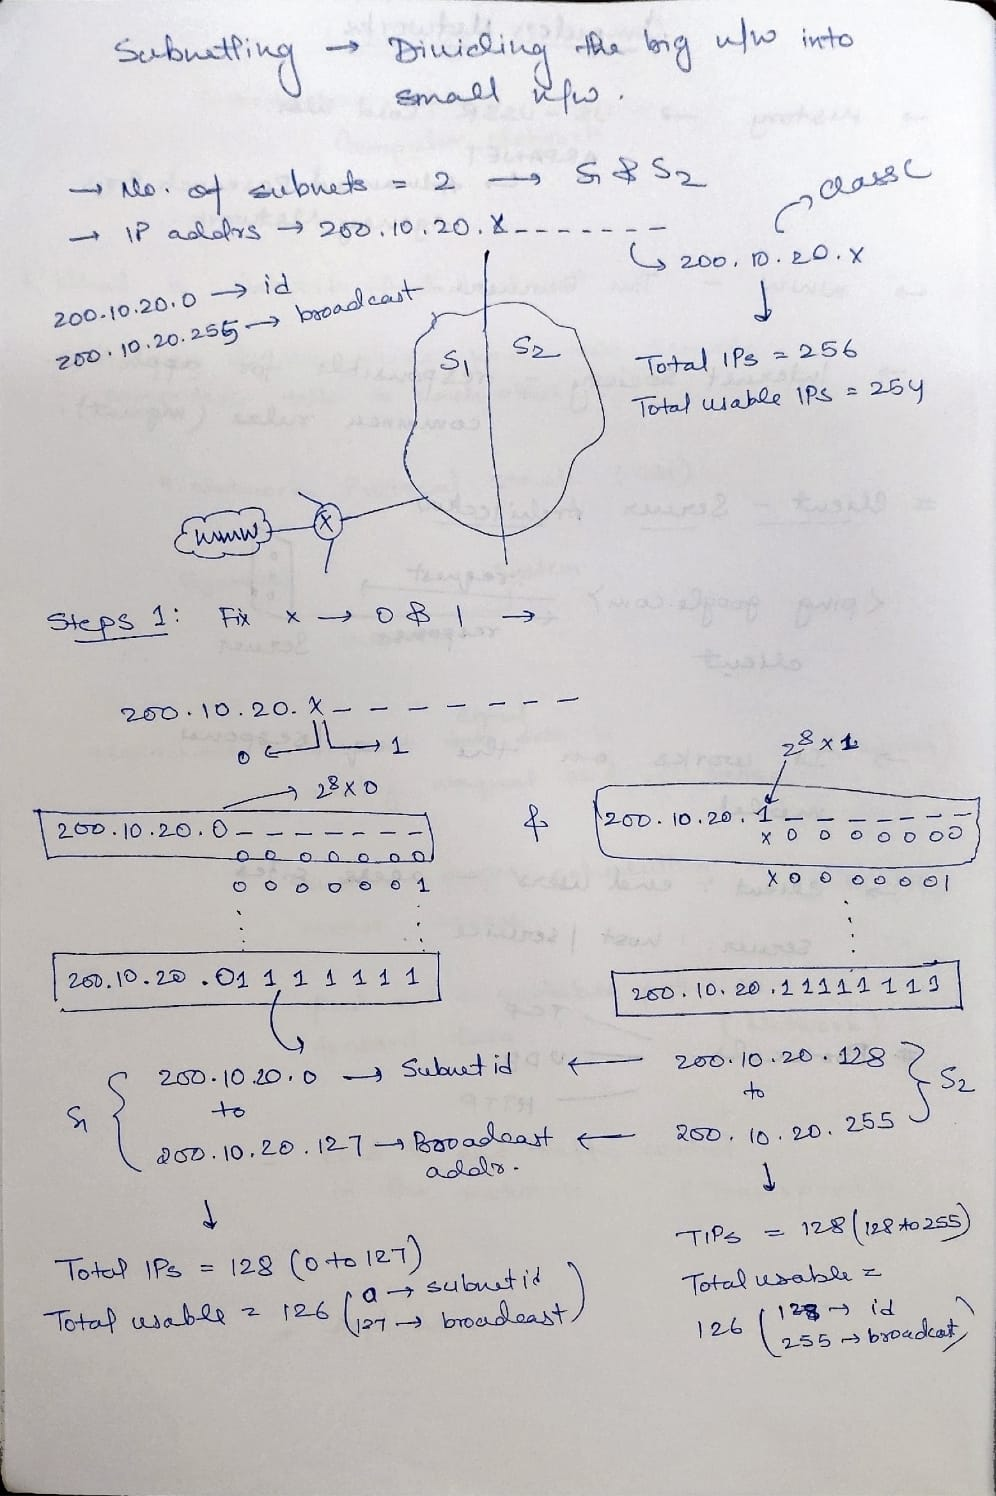 Subnetting → Dividing the big n/w into
small n/w.
→ No. of subnets = 2 → S1 & S2
→ IP addrs → 200.10.20.X-------
class C
↳ 200.10.20.X
200.10.20.0 → id
200.10.20.255 → broadcast
S1 S2
Total IPs = 256
Total usable IPs = 254
www
X
Steps 1: Fix x → 0 & 1 →
200.10.20.X-------
0 ← → 1
→ 2⁸x0
2⁸x1
200.10.20.0------- & 200.10.20.1-------
0 0 0 0 0 0 0
X 0 0 0 0 0 0 0
0 0 0 0 0 0 1
X 0 0 0 0 0 0 1
200.10.20.01 1 1 1 1 1 1
200.10.20.1 1 1 1 1 1 1 1
S1 { 200.10.20.0 → Subnet id ← 200.10.20.128 } S2
to to
200.10.20.127 → Broadcast ← 200.10.20.255
addr.
Total IPs = 128 (0 to 127)
Total usable = 126 (0 → subnet id
127 → broadcast)
TIPs = 128 (128 to 255)
Total usable =
126 (128 → id
255 → broadcat)